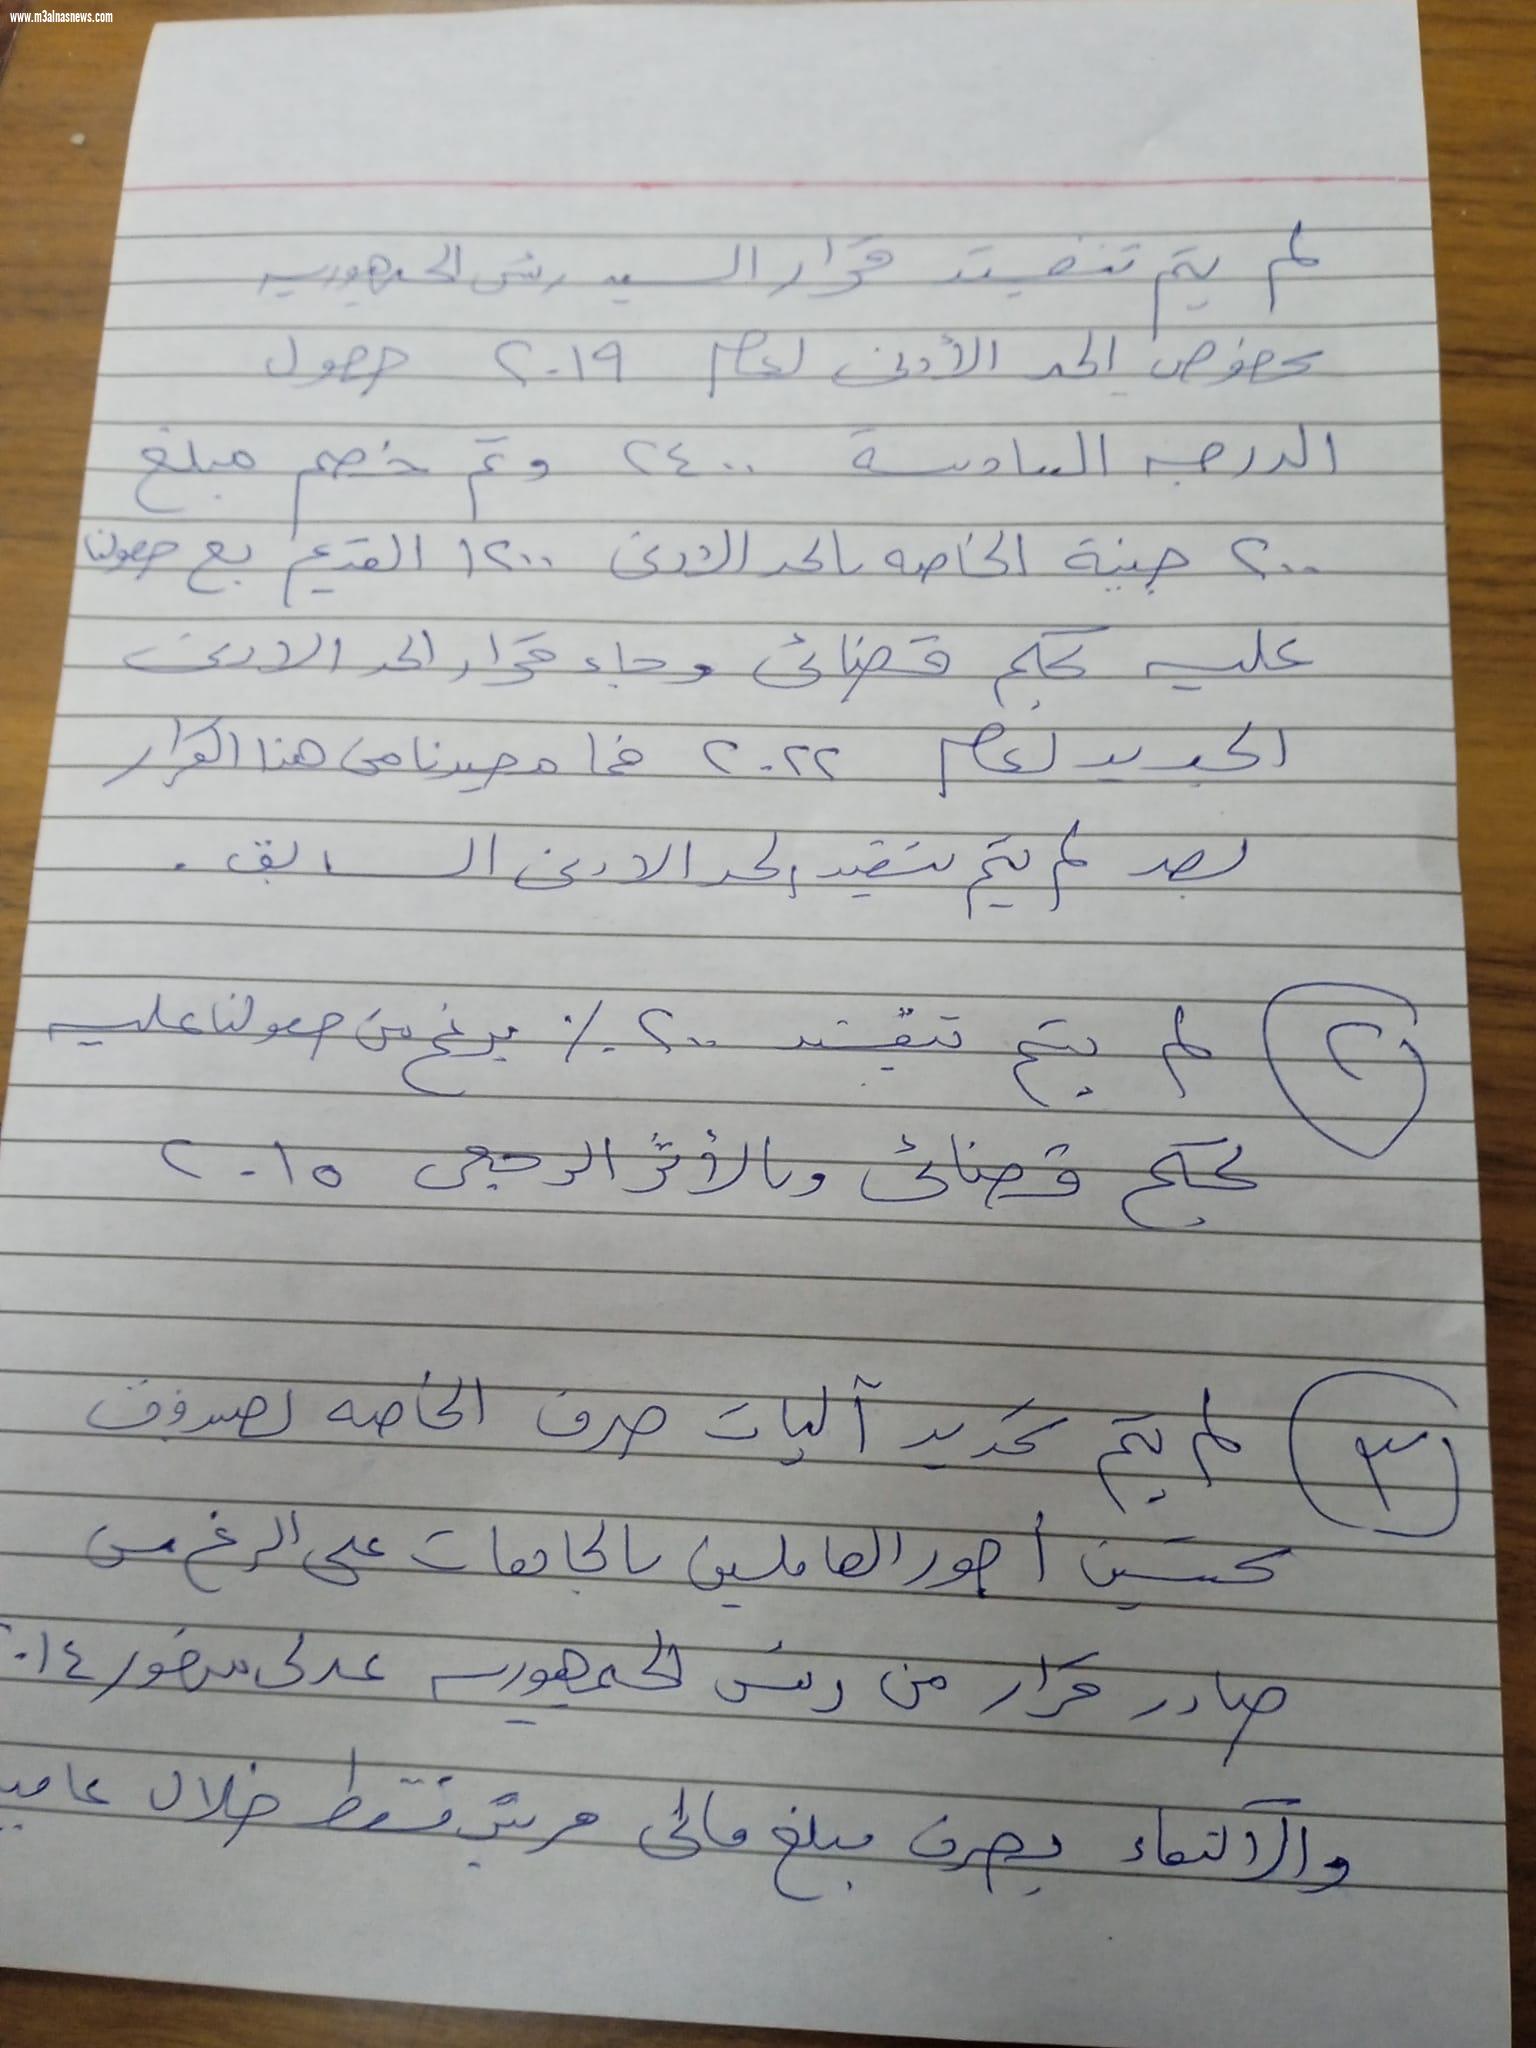 www.m3alnasnews.com
لم يتم تنفيذ قرار السيد رئيس الجمهوريه
بخصوص الحد الأدنى لعام ٢٠١٩ حصول
الدرجه السادسة ٢٤٠٠ وتم خصم مبلغ
٢٠٠ جنية الخاصه بالحد الادنى ١٢٠٠ القديم مع حصولنا
عليه بحكم قضائى وجاء قرار الحد الادنى
الجديد لعام ٢٠٢٢ فما مصيرنا من هذا القرار
بعد لم يتم تنفيذ الحد الادنى السابق .
٢ لم يتم تنفيذ ٢٠٠٪ برغم من حصولنا عليه
بحكم قضائى وبالأثر الرجعى ٢٠١٥
٣ لم يتم تحديد آليات صرف الخاصه لصندوق
تحسين أجور العاملين بالجامعات على الرغم من
صادر قرار من رئيس الجمهوريه عدلى منصور ٢٠١٤
والاكتفاء بصرف مبلغ مالى مرتين فقط خلال